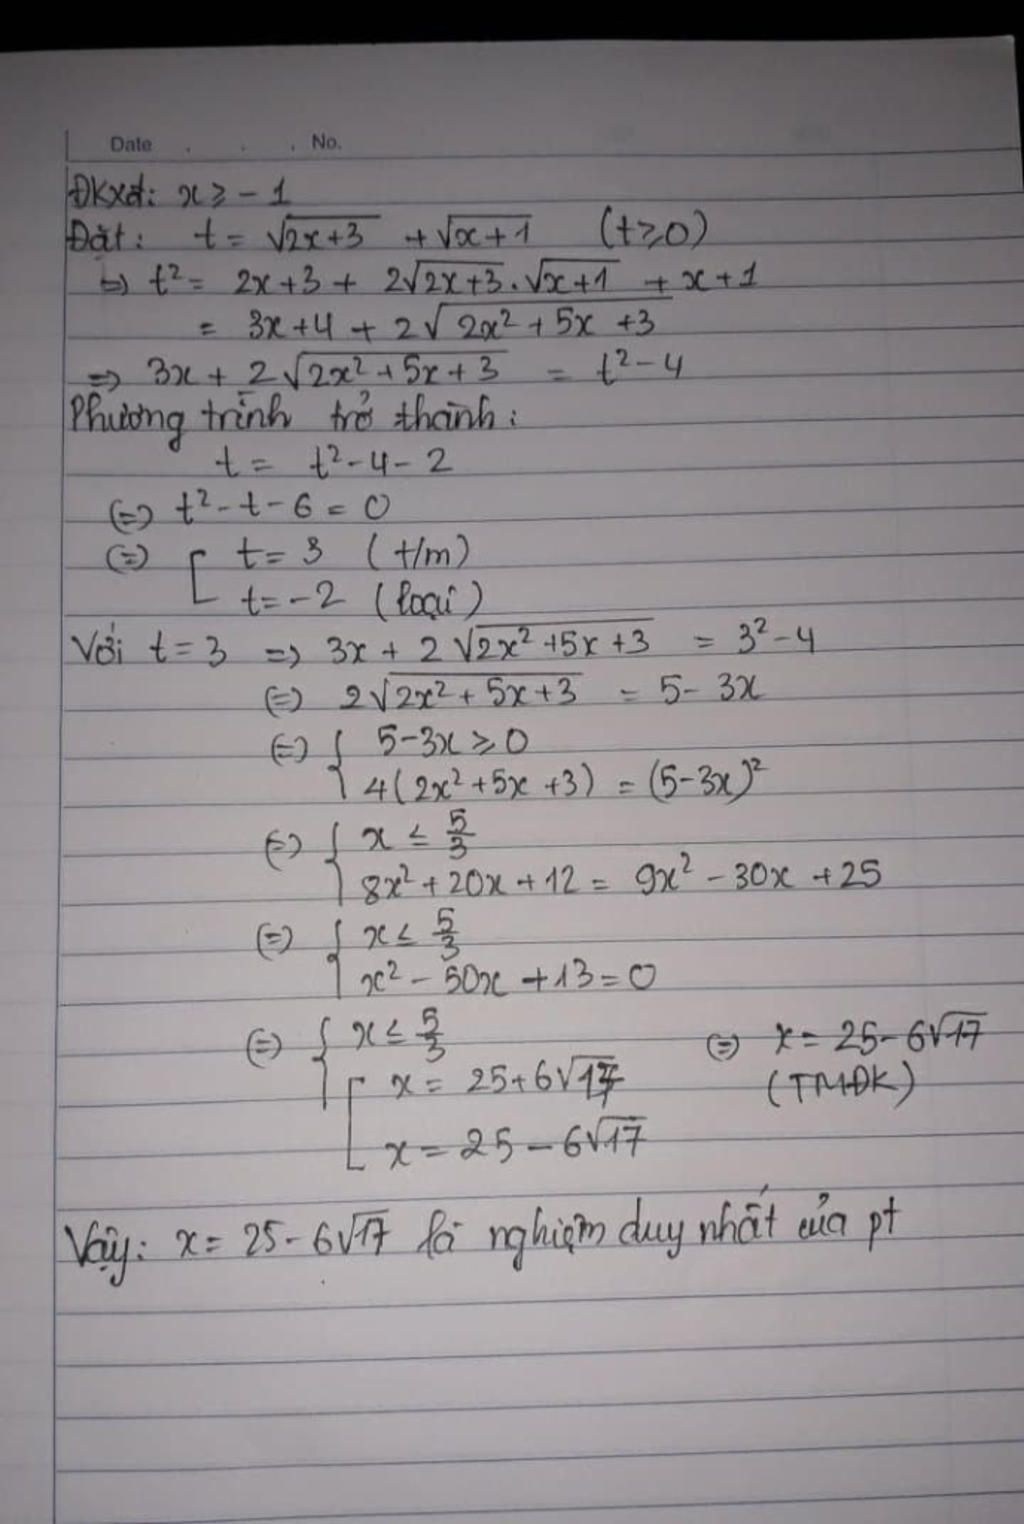 Date . . . No.
ĐKXĐ: x ≥ -1
Đặt: t = √(2x+3) + √(x+1) (t≥0)
=> t² = 2x+3 + 2√(2x+3).√(x+1) + x+1
= 3x+4 + 2√(2x² + 5x +3)
=> 3x + 2√(2x² + 5x + 3) = t² - 4
Phương trình trở thành:
t = t² - 4 - 2
(=) t² - t - 6 = 0
(=) [ t = 3 (t/m)
t = -2 (loại)
Với t = 3 => 3x + 2√(2x² + 5x + 3) = 3² - 4
(=) 2√(2x² + 5x + 3) = 5 - 3x
(=) { 5-3x ≥ 0
4(2x² + 5x + 3) = (5-3x)²
(=) { x ≤ 5/3
8x² + 20x + 12 = 9x² - 30x + 25
(=) { x ≤ 5/3
x² - 50x + 13 = 0
(=) { x ≤ 5/3 (=) x = 25 - 6√17
[ x = 25 + 6√17 (TMĐK)
x = 25 - 6√17
Vậy: x = 25 - 6√17 là nghiệm duy nhất của pt